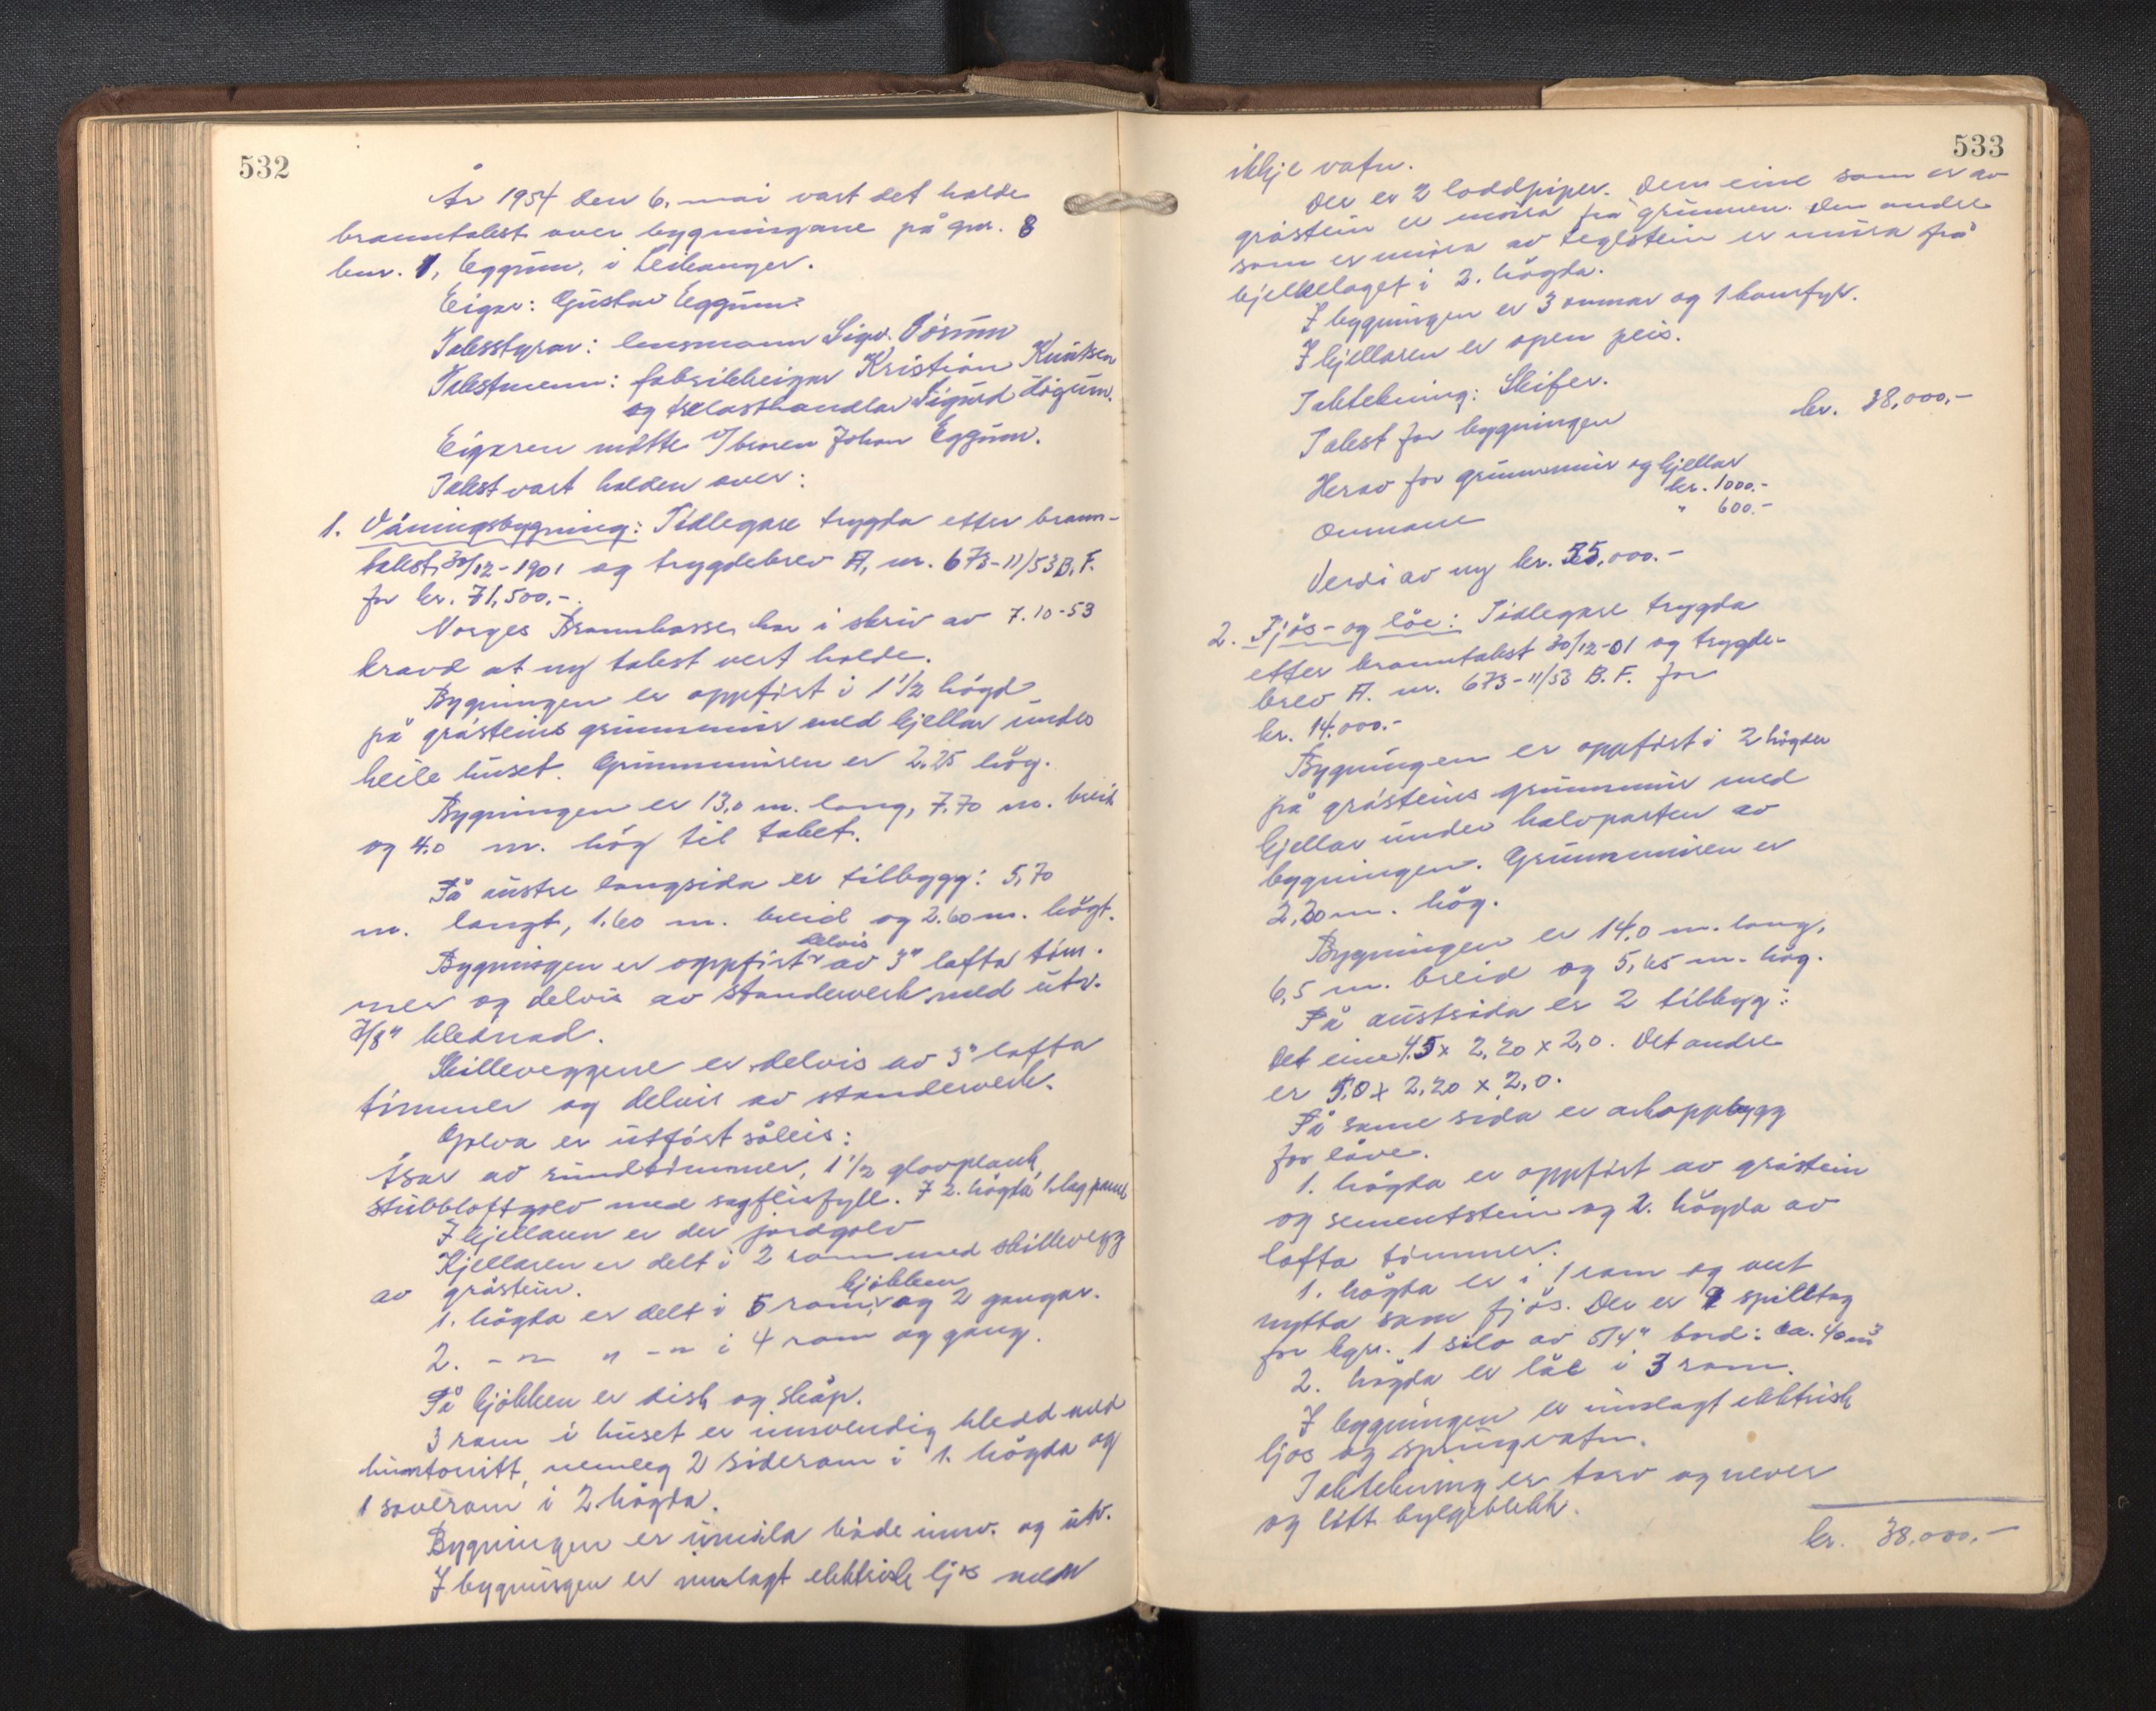 532
År 1954 den 6. mai vart det halde
branntakst over bygningane på gnr. 8
bnr. 1, Eggum, i Leikanger.
Eigar: Gustav Eggum
Takststyrar: lensmann Sigv.
Takstmenn: fabrikkeigar Kristian Knutsen
og trelasthandlar Sigurd
Eigaren møtte v/ broren Johan Eggum.
Takst vart halden over:
1. Våningsbygning: Tidlegare trygda etter brann-
takst 30/12-1901 og trygdebrev A, nr. 673-11/53 B.F.
for kr. 71,500,-.
Norges Brannkasse har i skriv av 7.10-53
kravd at ny takst vert halde.
Bygningen er oppført i 1 1/2 högd
på gråsteins grunnmur med kjellar under
heile huset. Grunnmuren er 2.25 høg.
Bygningen er 13,0 m. lang, 7.70 m. breid
og 4.0 m. høg til taket.
På austre langsida er tilbygg: 5,70
m. langt, 1.60 m. breid og 2.60 m. høgt.
Bygningen er oppført delvis av 3" lafta tim-
mer og delvis av standerverk med utv.
7/8" klednad.
Skilleveggene er delvis av 3" lafta
timmer og delvis av standerverk.
Golva er utført såleis:
Åsar av rundtimmer, 1 1/2 glovplank,
stubbloftgolv med sagflisfyll. I 2. høgda 1 lag panel
I kjellaren er der jordgolv
Kjellaren er delt i 2 rom med skillevegg
av gråstein.
1. høgda er delt i 5 rom, kjøkken og 2 gangar.
2. -"- " -" i 4 rom og gang.
På kjøkken er disk og skåp.
3 rom i huset er innvendig kledd med
huntonitt, nemleg 2 siderom i 1. høgda og
1 soverom i 2 høgda.
Bygningen er umåla både innv. og utv.
I bygningen er innlagt elektrisk ljos men
533
ikkje vatn.
Der er 2 loddpiper. Den eine som er av
gråstein er mura frå grunnen. Den andre
som er mura av teglstein er mura frå
bjelkelaget i 2. høgda.
I bygningen er 3 omnar og 1 komfyr.
I kjellaren er open peis.
Taktekning: Skifer.
Takst for bygningen kr. 38,000,-
Herav for grunnmur og kjellar
kr. 1000.-
Omnane " 600.-
Verdi av ny kr. 55,000.-
2. Fjøs- og löe: Tidlegare trygda
etter branntakst 30/12-01 og trygde-
brev A. nr. 673-11/53 B.F. for
kr. 14.000.-
Bygningen er oppført i 2 høgder
på gråsteins grunnmur med
kjellar under halvparten av
bygningen. Grunnmuren er
2,20 m. høg.
Bygningen er 14,0 m. lang,
6,5 m. breid og 5,65 m. høg.
På austsida er 2 tilbygg:
Det eine 4.5 x 2,20 x 2,0. Det andre
er 5,0 x 2,20 x 2,0.
På same sida er arkoppbygg
for låve.
1. høgda er oppført av gråstein
og sementstein og 2. høgda av
lafta timmer.
1. høgda er i 1 rom og vert
nytta som fjøs. Der er 9 spilltog
for kyr. 1 silo av 5/4" bord: ca. 40 m3
2. høgda er löe i 3 rom.
I bygningen er innlagt elektrisk
ljos og springvatn.
Taktekning er torv og never
og litt bylgeblekk.
kr. 38,000.-